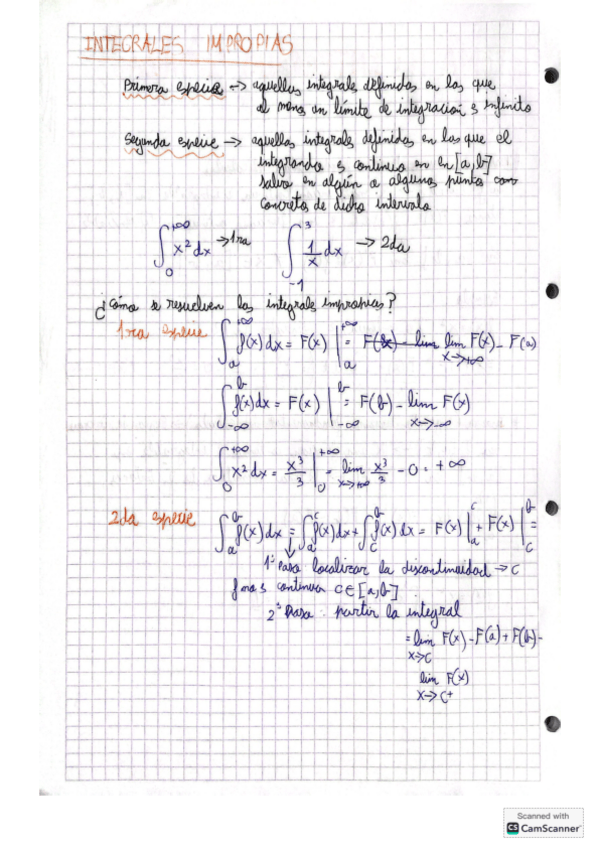 INTEGRALES IMPROPIAS
Primera especie → aquellas integrals definidas en las que
al menos un límite de integración es infinito
Segunda especie → aquellas integrals definidas en las que el
integrando es continuo en en [a,b]
salvo en algún o algunos puntos con
concretos de dicho intervalo
∫₀^{+∞} x² dx → 1ra ∫₋₁³ 1/x dx → 2da
¿Cómo se resuelven las integrals impropias?
1ra especie ∫ₐ^{+∞} f(x) dx = F(x) |ₐ^{+∞} = lim F(x) - F(a)
x→+∞
∫_{-∞}^b f(x) dx = F(x) |_{-∞}^b = F(b) - lim F(x)
x→-∞
∫₀^{+∞} x² dx = x³/3 |₀^{+∞} = lim x³/3 - 0 = +∞
x→+∞
2da especie ∫ₐ^b f(x) dx = ∫ₐ^c f(x) dx + ∫_c^b f(x) dx = F(x) |ₐ^c + F(x) |_c^b =
1º Paso localizar la discontinuidad → C
f no es continua C ∈ [a,b]
2º Paso. partir la integral
= lim F(x) - F(a) + F(b) -
x→c
lim F(x)
x→c+
Scanned with
CS CamScanner